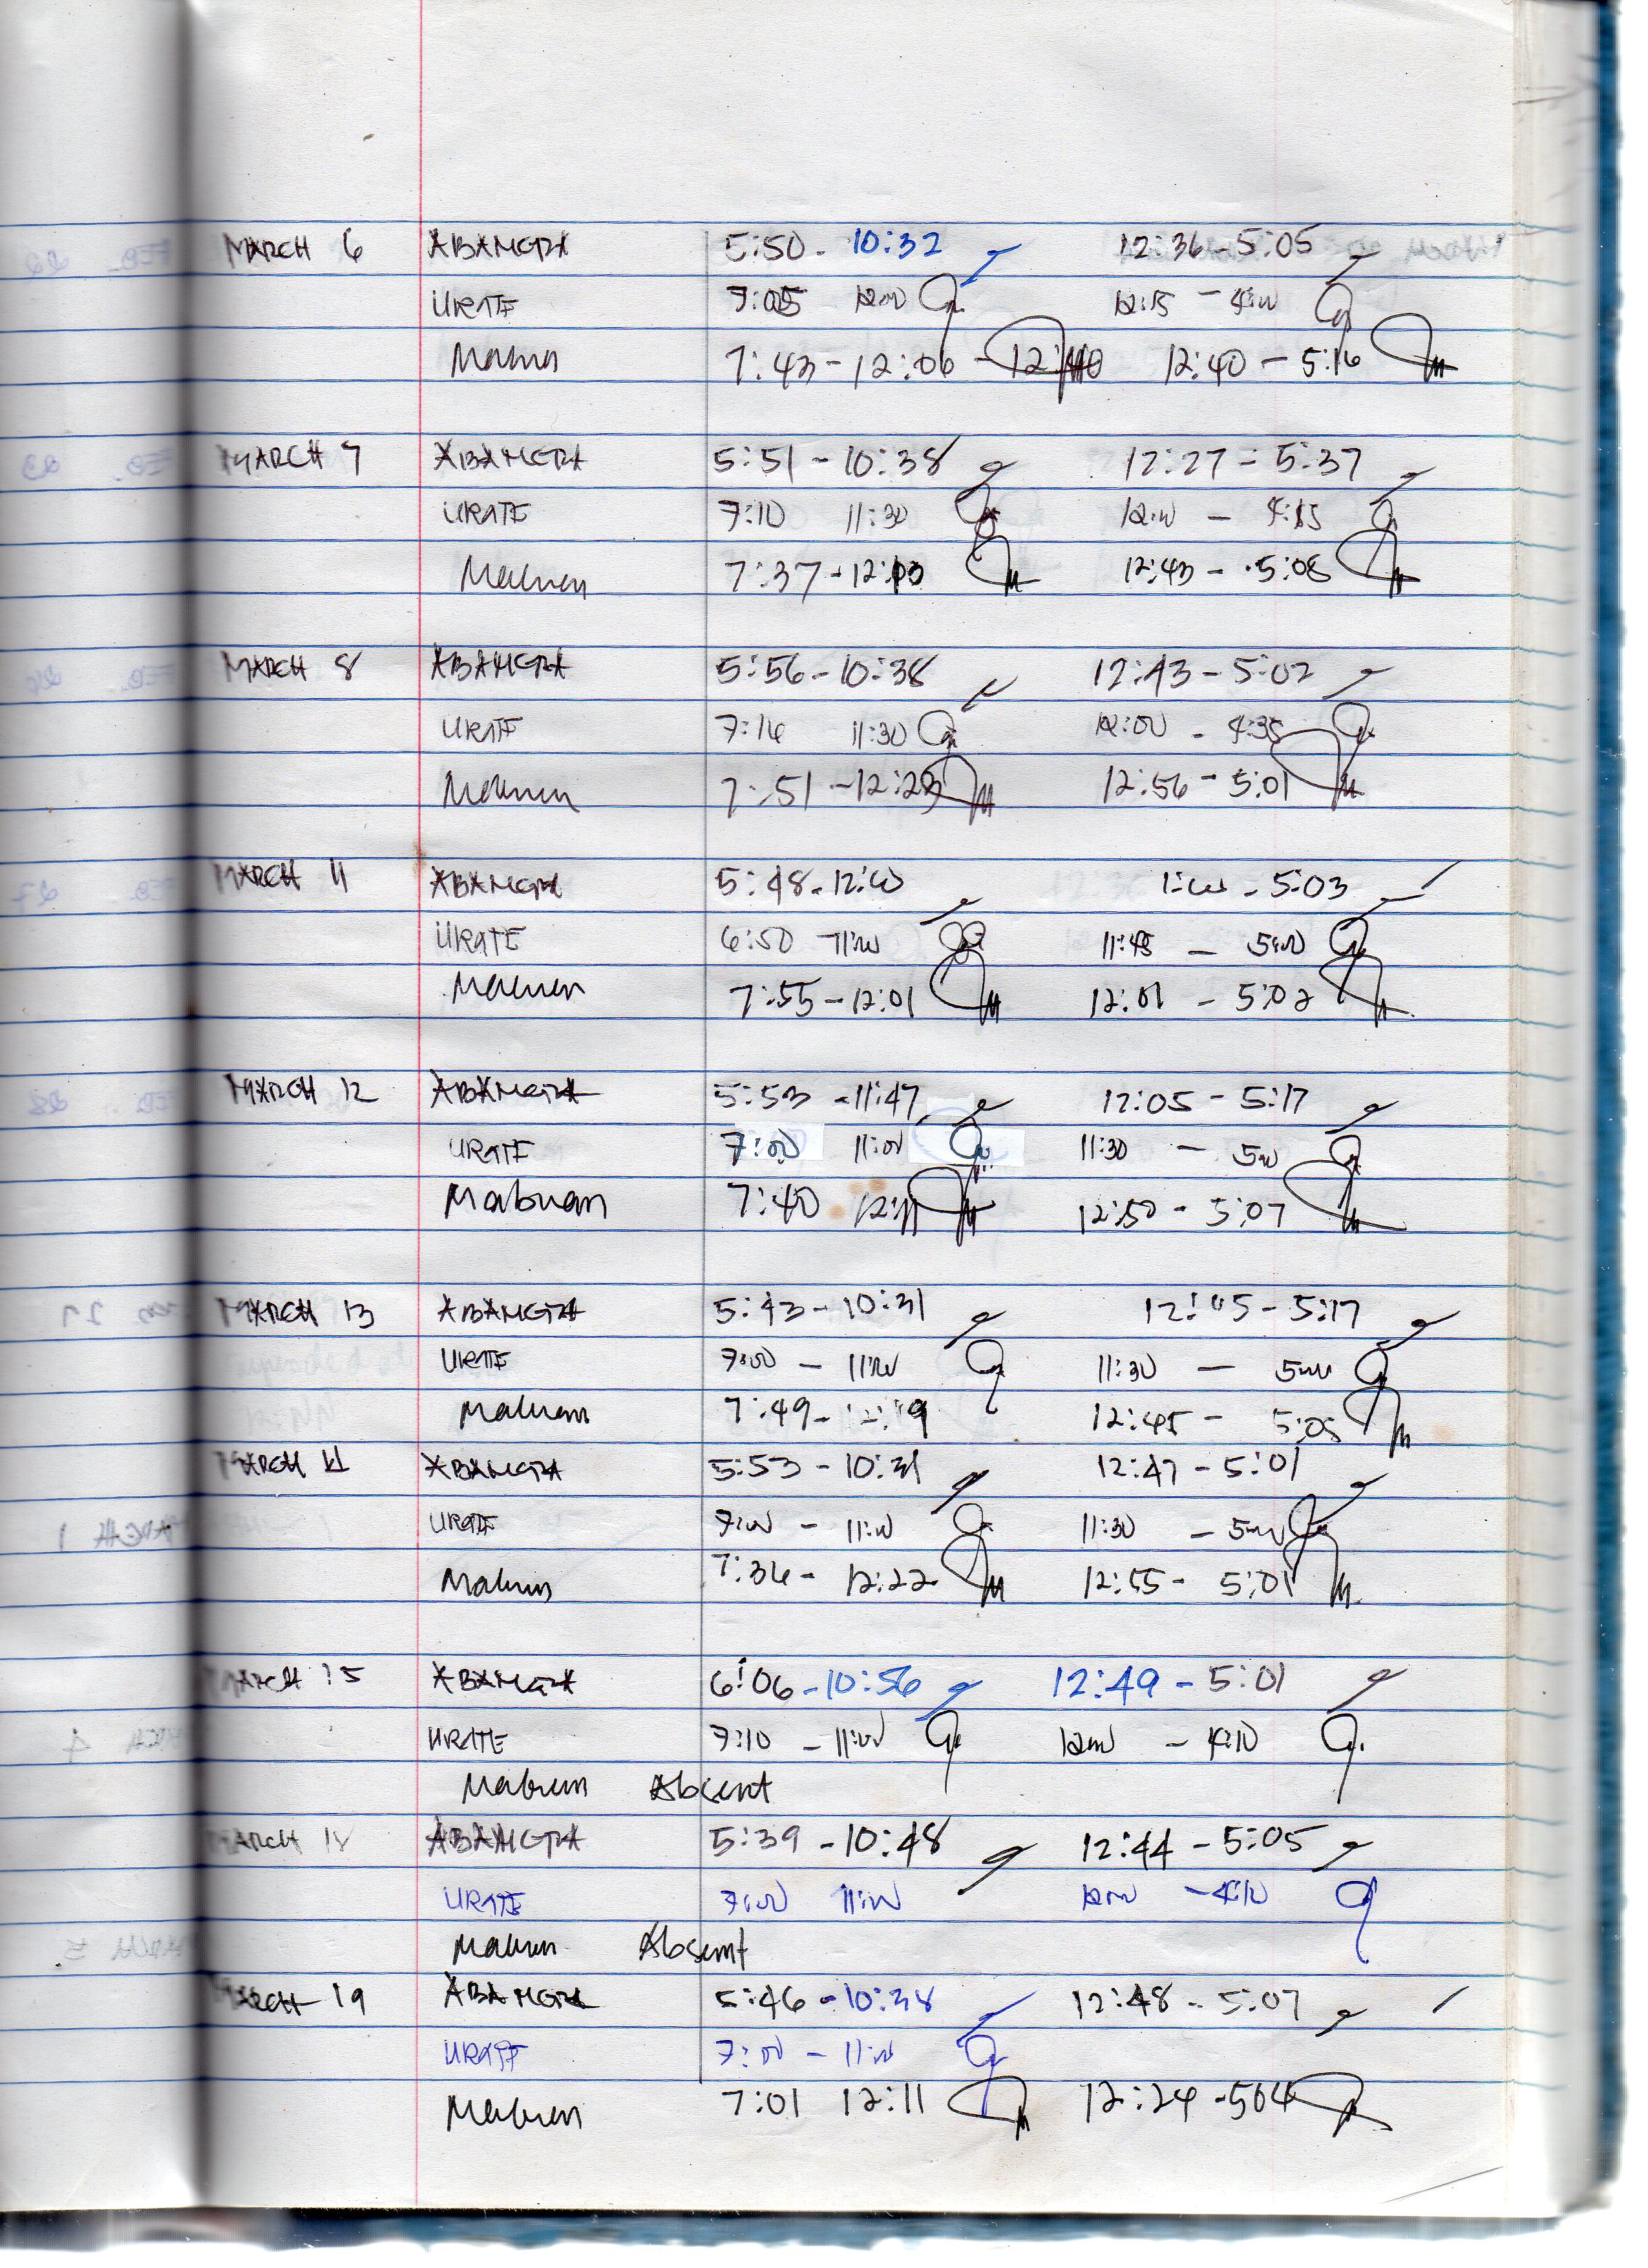 MARCH 6 ABAMGRA 5:50 - 10:32 12:36 - 5:05
URATE 7:05 12:00 12:15 - 4:00
Mabuan 7:43 - 12:06 - 12:40 - 5:16
MARCH 7 ABAMGRA 5:51 - 10:38 12:27 - 5:37
URATE 7:10 11:30 12:00 - 4:15
Mabuan 7:37 - 12:13 12:43 - 5:08
MARCH 8 ABAMGRA 5:56 - 10:38 12:43 - 5:02
URATE 7:16 11:30 12:00 - 4:35
Mabuan 7:51 - 12:23 12:56 - 5:01
MARCH 11 ABAMGRA 5:48 - 12:00 1:00 - 5:03
URATE 6:50 - 11:00 11:45 - 5:00
Mabuan 7:55 - 12:01 12:01 - 5:02
MARCH 12 ABAMGRA 5:53 - 11:47 12:05 - 5:17
URATE 7:00 11:00 11:30 - 5:00
Mabuan 7:40 12:11 12:50 - 5:07
MARCH 13 ABAMGRA 5:43 - 10:31 12:45 - 5:17
URATE 7:00 - 11:00 11:30 - 5:00
Mabuan 7:49 - 12:19 12:45 - 5:05
MARCH 14 ABAMGRA 5:53 - 10:31 12:47 - 5:01
URATE 7:00 - 11:00 11:30 - 5:00
Mabuan 7:36 - 12:22 12:55 - 5:01
MARCH 15 ABAMGRA 6:06 - 10:56 12:49 - 5:01
URATE 7:10 - 11:00 12:00 - 4:10
Mabuan Absent
MARCH 18 ABAMGRA 5:39 - 10:48 12:44 - 5:05
URATE 7:00 11:00 12:00 - 4:10
Mabuan Absent
MARCH 19 ABAMGRA 5:46 - 10:38 12:48 - 5:07
URATE 7:00 - 11:00
Mabuan 7:01 12:11 12:24 - 504